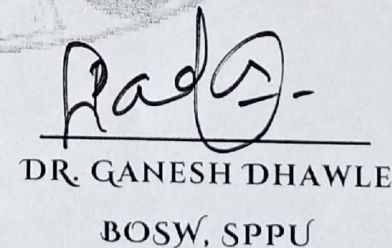 DR. GANESH DHAWLE
BOSW, SPPU